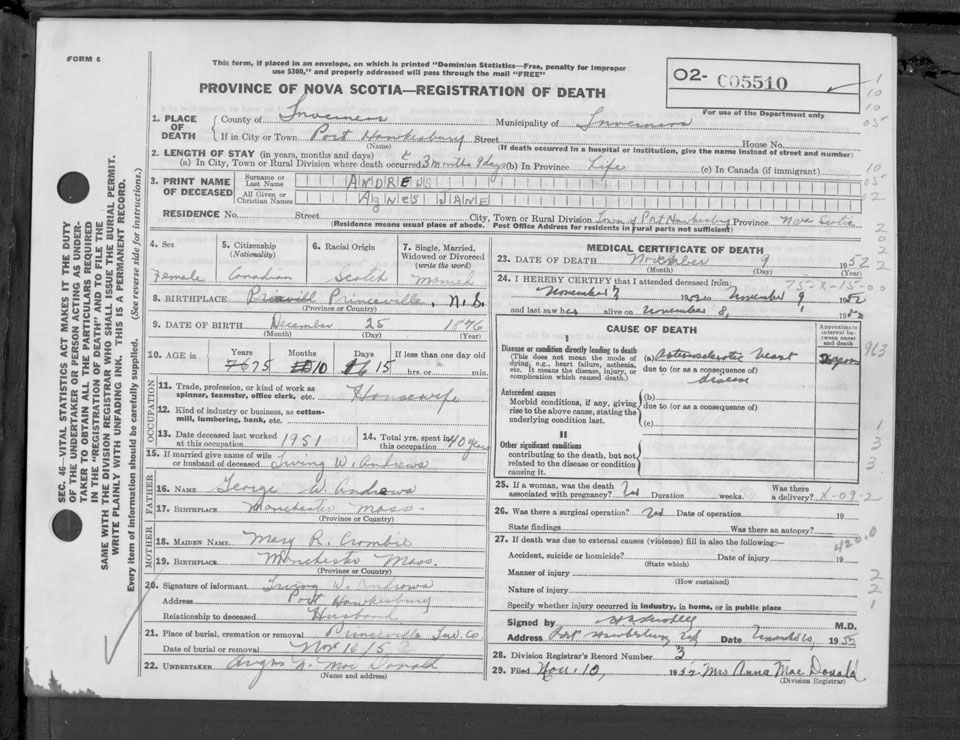 FORM 6
This form, if placed in an envelope, on which is printed "Dominion Statistics—Free, penalty for improper
use $300," and properly addressed will pass through the mail "FREE"
PROVINCE OF NOVA SCOTIA—REGISTRATION OF DEATH
O2- C05510
For use of the Department only
1. PLACE OF DEATH
County of Inverness Municipality of Inverness
If in City or Town Port Hawkesbury Street House No.
(Name) (If death occurred in a hospital or institution, give the name instead of street and number)
2. LENGTH OF STAY (in years, months and days)
(a) In City, Town or Rural Division where death occurred 3 months 9 days (b) In Province Life (c) In Canada (if immigrant)
3. PRINT NAME OF DECEASED
Surname or Last Name ANDREWS
All Given or Christian Names AgNES JANE
RESIDENCE No. Street City, Town or Rural Division Town of Port Hawkesbury Province Nova Scotia
(Residence means usual place of abode. Post Office Address for residents in rural parts not sufficient)
4. Sex
Female
5. Citizenship (Nationality)
Canadian
6. Racial Origin
Scotch
7. Single, Married, Widowed or Divorced (write the word)
Married
8. BIRTHPLACE Princeville, N.S.
(Province or Country)
9. DATE OF BIRTH December 25 1876
(Month) (Day) (Year)
10. AGE in Years Months Days If less than one day old
75 10 15 hrs. or min.
OCCUPATION
11. Trade, profession, or kind of work as spinner, teamster, office clerk, etc. Housewife
12. Kind of industry or business, as cotton-mill, lumbering, bank, etc.
13. Date deceased last worked at this occupation 1951
14. Total yrs. spent in this occupation 40 years
15. If married give name of wife or husband of deceased Irving W. Andrews
FATHER
16. NAME George W. Andrews
17. BIRTHPLACE Manchester Mass.
(Province or Country)
MOTHER
18. MAIDEN NAME Mary R. Crombie
19. BIRTHPLACE Manchester Mass.
(Province or Country)
20. Signature of informant Irving W. Andrews
Address Port Hawkesbury
Relationship to deceased Husband
21. Place of burial, cremation or removal Princeville Inv. Co.
Date of burial or removal Nov 10/52
22. UNDERTAKER Angus A. MacDonald
(Name and address)
MEDICAL CERTIFICATE OF DEATH
23. DATE OF DEATH November 9 1952
(Month) (Day) (Year)
24. I HEREBY CERTIFY that I attended deceased from:
75-X-15-00
November 7 1952 to November 9, 1952
and last saw her alive on November 8, 1952
CAUSE OF DEATH
Approximate interval between onset and death
I
Disease or condition directly leading to death
(This does not mean the mode of dying, e.g., heart failure, asthenia, etc. It means the disease, injury, or complication which caused death.)
(a) Arteriosclerotic heart disease
due to (or as a consequence of)
Antecedent causes
Morbid conditions, if any, giving rise to the above cause, stating the underlying condition last.
(b)
due to (or as a consequence of)
(c)
II
Other significant conditions
contributing to the death, but not related to the disease or condition causing it.
25. If a woman, was the death associated with pregnancy? No Duration weeks. Was there a delivery? X-09-2
26. Was there a surgical operation? No Date of operation 19
State findings Was there an autopsy?
27. If death was due to external causes (violence) fill in also the following:—
Accident, suicide or homicide? Date of injury 19
(State which)
Manner of injury
(How sustained)
Nature of injury
Specify whether injury occurred in industry, in home, or in public place
Signed by M.D.
Address Port Hawkesbury Date 1952
28. Division Registrar's Record Number 3
29. Filed Nov. 10, 1952 Mrs Anna MacDonald
(Division Registrar)
SEC. 46—VITAL STATISTICS ACT MAKES IT THE DUTY
OF THE UNDERTAKER OR PERSON ACTING AS UNDER-
TAKER TO OBTAIN ALL THE PARTICULARS REQUIRED
IN THE "REGISTRATION OF DEATH" AND TO FILE THE
SAME WITH THE DIVISION REGISTRAR WHO SHALL ISSUE THE BURIAL PERMIT.
WRITE PLAINLY WITH UNFADING INK. THIS IS A PERMANENT RECORD.
Every item of information should be carefully supplied. (See reverse side for instructions.)
1
10
10
05
10
05
02
2
0
2
2
963
1
3
3
420.0
2
2
1